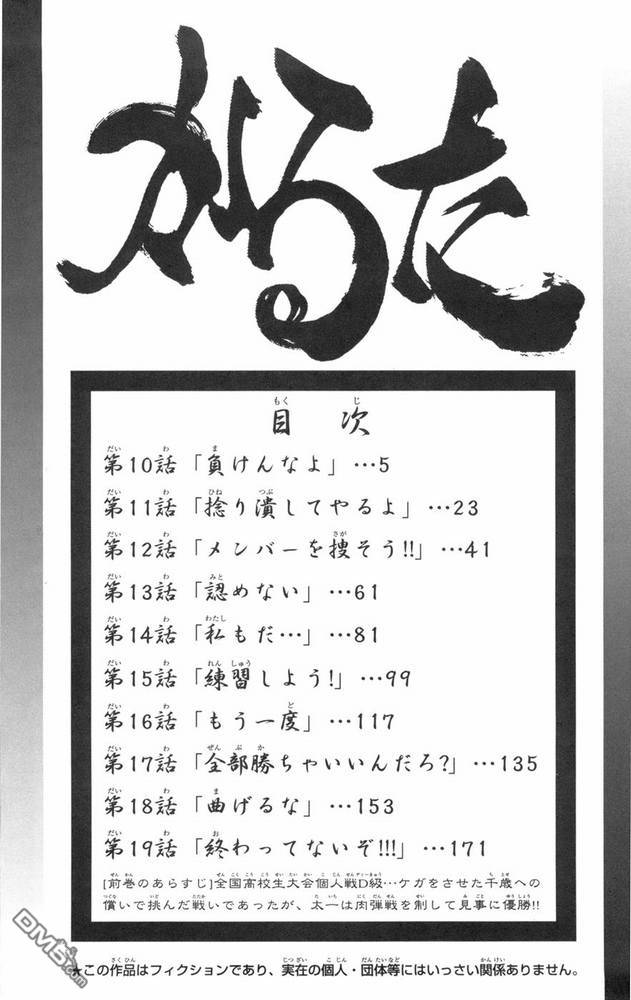 かるた
目次
第10話「負けんなよ」…5
第11話「捻り潰してやるよ」…23
第12話「メンバーを捜そう!!」…41
第13話「認めない」…61
第14話「私もだ…」…81
第15話「練習しよう!」…99
第16話「もう一度」…117
第17話「全部勝ちゃいいんだろ?」…135
第18話「曲げるな」…153
第19話「終わってないぞ!!!」…171
[前巻のあらすじ]全国高校生大会個人戦D級…ケガをさせた千歳への
償いで挑んだ戦いであったが、太一は肉弾戦を制して見事に優勝!!
★この作品はフィクションであり、実在の個人・団体等にはいっさい関係ありません。